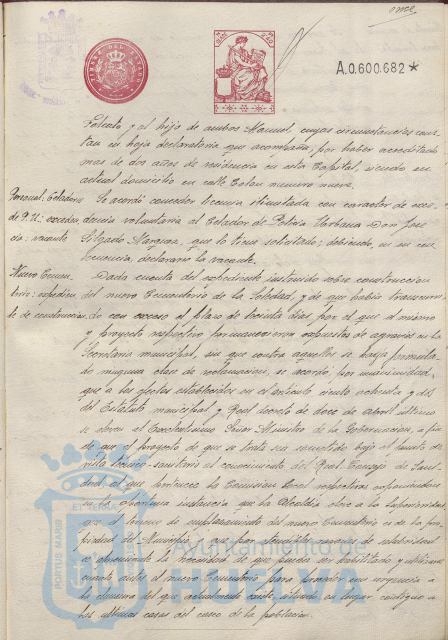 once
TIMBRE DEL ESTADO
A.0.600.682*
y el hijo de ambos Manuel, cuyas circunstancias cons-
tan en hoja declaratoria que acompaña, por haber acreditado
mas de dos años de residencia en esta Capital, siendo su
actual domicilio en calle Colon numero nueve.
Personal. Celadores
de P.U.: exceden-
cia: vacante
Se acordó conceder licencia ilimitada con caracter de exce-
dencia voluntaria al Celador de Policia Urbana Don José
Salgado Marquez, que lo tiene solicitado; debiendo, en su con-
secuencia declararse la vacante.
Nuevo Cemen-
terio: expedien-
te de construcción
Dada cuenta del expediente instruido sobre construccion
del nuevo Cementerio de la Soledad, y de que habia transcurri-
do con exceso el plazo de treinta dias por el que el mismo
y proyecto respectivo permanecieron expuestos de agravios en la
Secretaria municipal, sin que contra aquellos se haya formula-
do ninguna clase de reclamacion, se acordó, por unanimidad,
que a los efectos establecidos en el articulo ciento ochenta y dos
del Estatuto municipal y Real decreto de doce de abril ultimo
se eleven al Excelentisimo Señor Ministro de la Gobernacion, a fin
de que el proyecto de que se trata sea sometido bajo el punto de
vista tecnico-sanitario al conocimiento del Real Consejo de Sani-
dad al que
en la oportuna instancia que la Alcaldia eleve a la Superioridad,
que el terreno de emplazamiento del nuevo Cementerio es de la pro-
piedad del Municipio y que por atendibles razones de salubridad
la necesidad de que pueda ser habilitado y utilizarse
cuanto antes el nuevo Cementerio para proceder con urgencia a
la clausura del que actualmente existe, situado en lugar contiguo a
las ultimas casas del casco de la poblacion.
PORTUS MARIS ET TERRAE
Ayuntamiento de
HUELVA